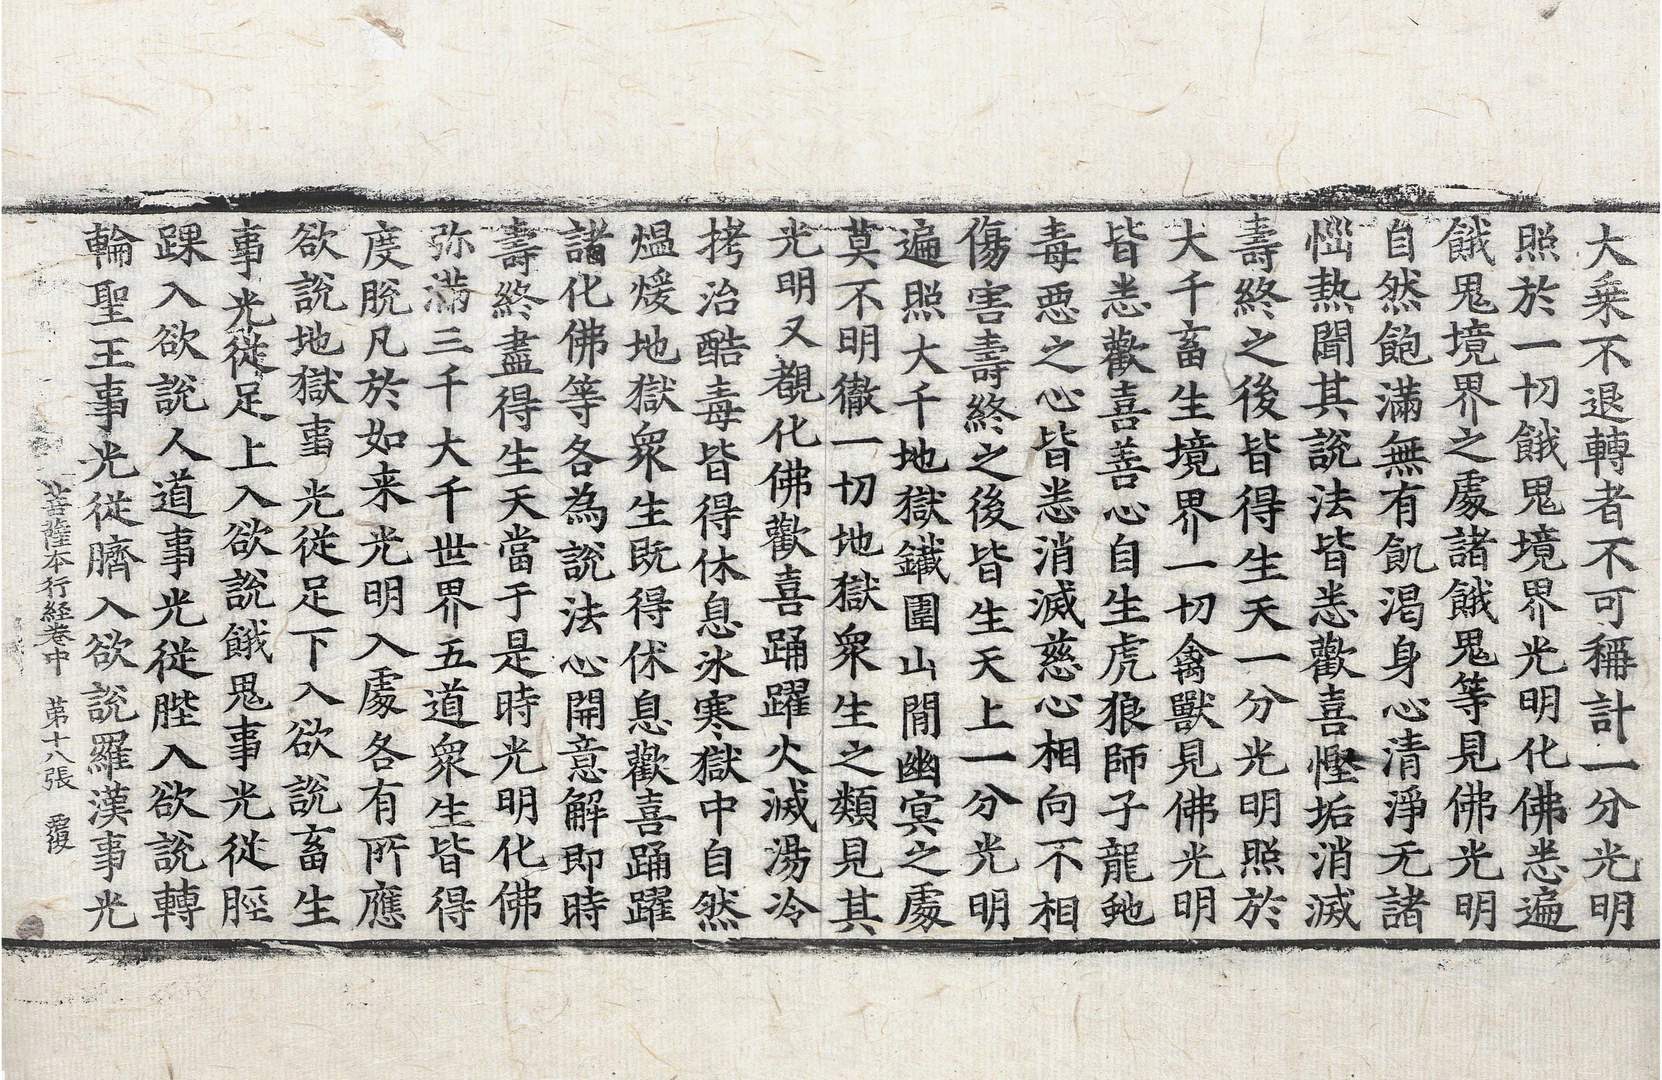 大乗不退轉者不可稱計一分光明
照於一切餓鬼境界光明化佛悉遍
餓鬼境界之處諸餓鬼等見佛光明
自然飽滿無有飢渴身心清淨无諸
惱熱聞其說法皆悉歡喜慳垢消滅
壽終之後皆得生天一分光明照於
大千畜生境界一切禽獸見佛光明
皆悉歡喜善心自生虎狼師子龍虵
毒惡之心皆悉消滅慈心相向不相
傷害壽終之後皆生天上一分光明
遍照大千地獄鐵圍山閒幽冥之處
莫不明徹一切地獄衆生之類見其
光明又覩化佛歡喜踊躍火滅湯冷
拷治酷毒皆得休息氷寒獄中自然
熅煖地獄衆生既得休息歡喜踊躍
諸化佛等各為說法心開意解即時
壽終盡得生天當于是時光明化佛
弥滿三千大千世界五道衆生皆得
度脫凡於如来光明入處各有所應
欲說地獄事光從足下入欲說畜生
事光從足上入欲說餓鬼事光從脛
踝入欲說人道事光從䏶入欲說轉
輪聖王事光從臍入欲說羅漢事光
菩薩本行経卷中 第十八張 惡